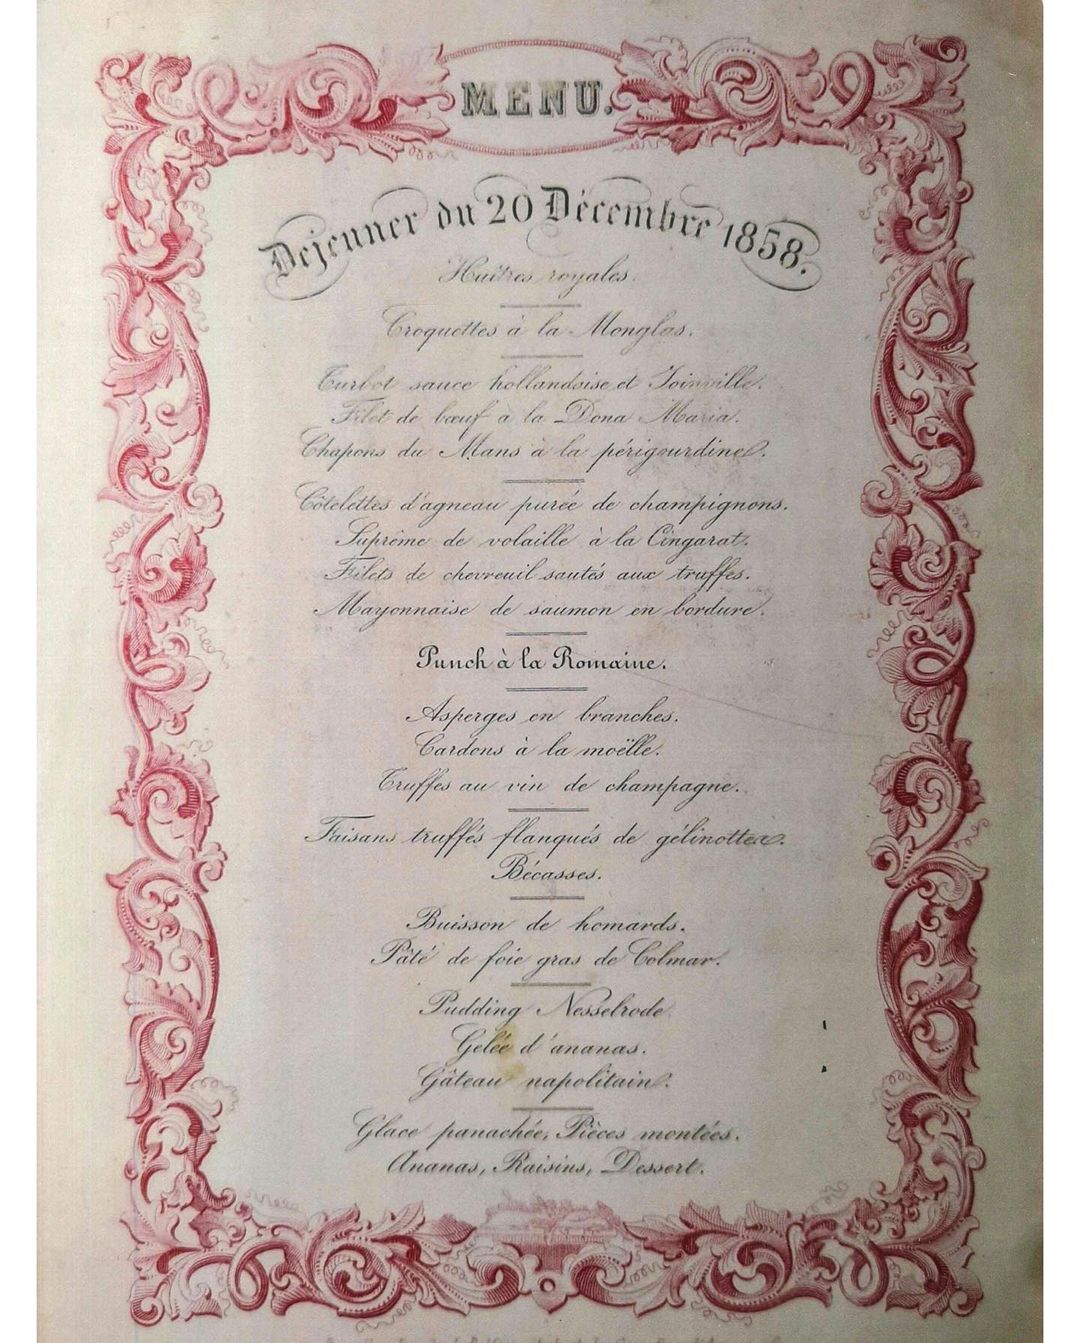 MENU.
Dejeuner du 20 Décembre 1858.
Huîtres royales.
Croquettes à la Monglas.
Turbot sauce hollandaise et Joinville.
Filet de bœuf à la Dona Maria.
Chapons du Mans à la périgourdine.
Côtelettes d'agneau purée de champignons.
Suprême de volaille à la Cingarat.
Filets de chevreuil sautés aux truffes.
Mayonnaise de saumon en bordure.
Punch à la Romaine.
Asperges en branches.
Cardons à la moëlle.
Truffes au vin de champagne.
Faisans truffés flanqués de gélinottes.
Bécasses.
Buisson de homards.
Pâté de foie gras de Colmar.
Pudding Nesselrode.
Gelée d'ananas.
Gâteau napolitain.
Glace panachée, Pièces montées.
Ananas, Raisins, Dessert.